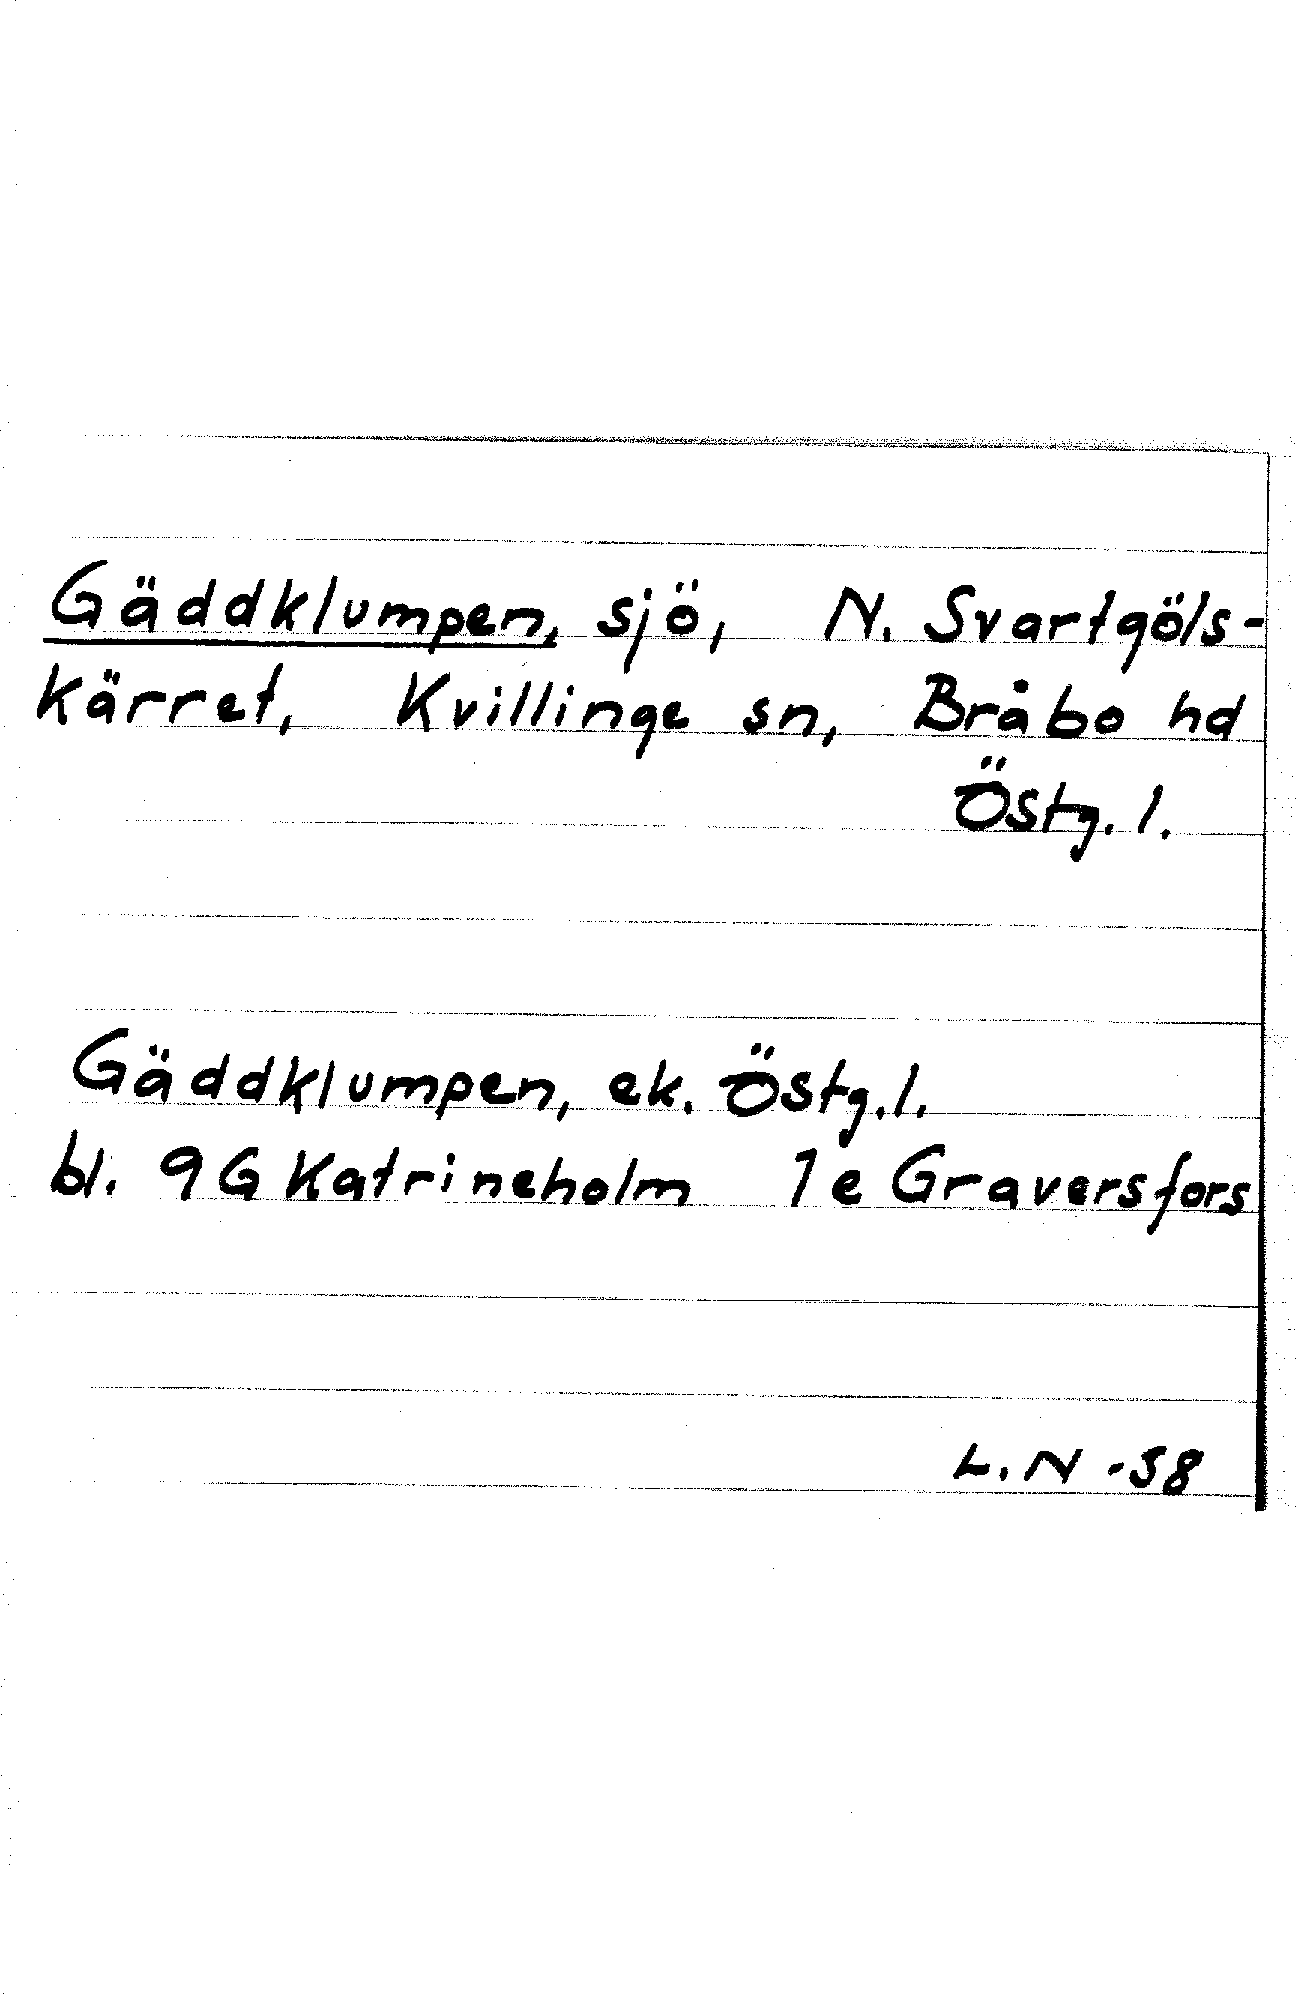 Gäddklumpen, sjö, N. Svartgöls-
kärret, Kvillinge sn, Bråbo hd
Östg. l.
Gäddklumpen, ek. Östg. l.
bl. 9G Katrineholm 1e Graversfors
L. N -58